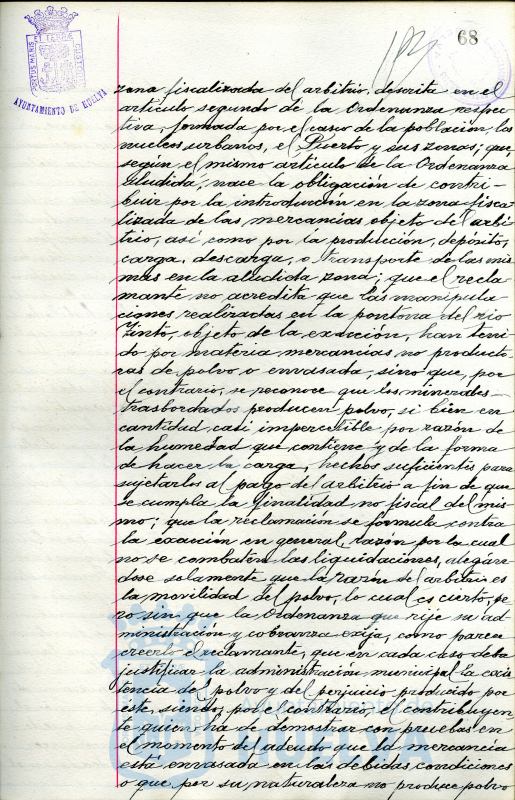 68
AYUNTAMIENTO DE HUELVA
zona fiscalizada del arbitrio, descrita en el
artículo segundo de la Ordenanza respec-
tiva, formada por el casco de la población, los
nucleos urbanos, el Puerto y sus zonas; que,
según el mismo artículo de la Ordenanza
aludida, nace la obligación de contri-
buir por la introducción en la zona fisca-
lizada de las mercancias objeto del arbi-
trio, así como por la producción, depósito,
carga, descarga, o transporte de las mis
mas en la aludida zona; que el recla-
mante no acredita que las manipula-
ciones realizadas en la pontona del rio
Tinto, objeto de la exacción, han teni
do por materia mercancias no producto
ras de polvo o envasada, sino que, por
el contrario, se reconoce que los minerales-
trasbordados producen polvo, si bien en
cantidad casi imperceptible por razón de
la humedad que contiene y de la forma
de hacer la carga, hechos suficientes para
sujetarlos al pago del arbitrio a fin de que
se cumpla la finalidad no fiscal del mis
mo; que la reclamación se formula contra
la exacción en general, razón por la cual
no se combaten las liquidaciones, alegán-
dose solamente que la razón del arbitrio es
la movilidad del polvo, lo cual es cierto, pe
ro sin que la Ordenanza que rije su ad-
ministración y cobranza exija, como parece
creerlo el reclamante, que en cada caso deba
justificar la administración municipal la exis
tencia de polvo y del perjuicio producido por
éste, siendo, por el contrario, el contribuyen-
te quien ha de demostrar con pruebas en
el momento del adeudo que la mercancia
está envasada en las debidas condiciones
o que por su naturaleza no produce polvo